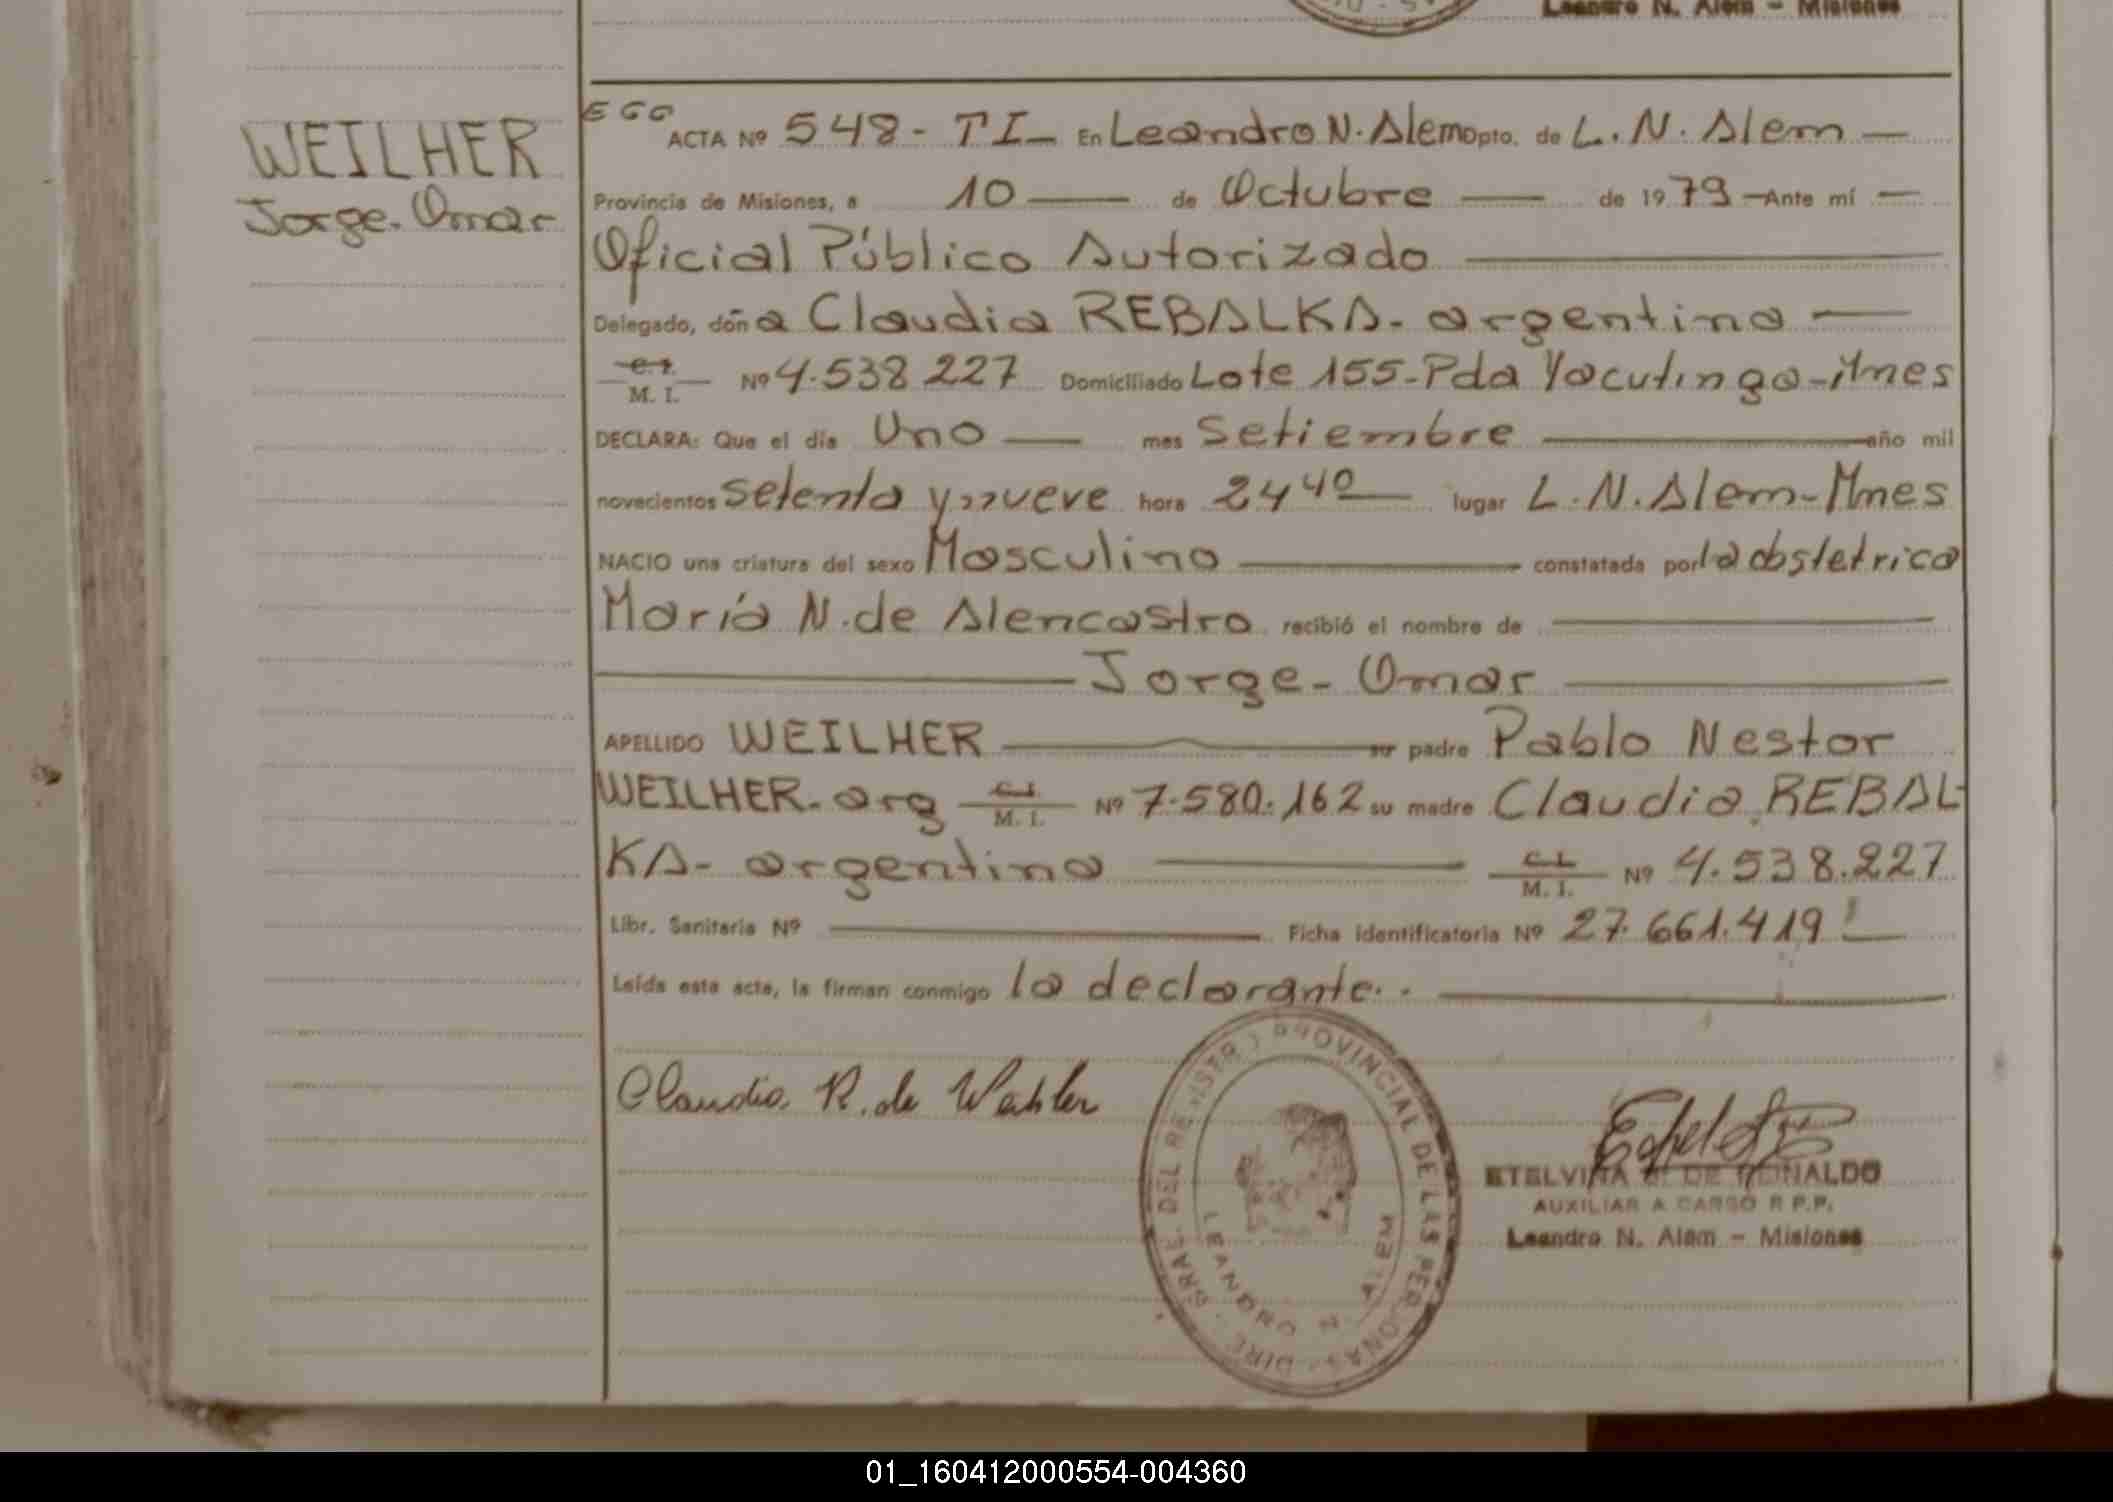 Leandro N. Alem - Misiones
WEILHER
Jorge. Omar
EGG
ACTA Nº 548- TI- En Leandro N. Alem Dpto. de L. N. Alem —
Provincia de Misiones, a 10 — de Octubre — de 1979 — Ante mí —
Oficial Público Autorizado —
Delegado, doña Claudia REBALKA. argentina —
C.I. M. I. Nº 4.538 227 Domiciliado Lote 155-Pda Yacutinga-Mnes
DECLARA: Que el día Uno — mes Setiembre — año mil
novecientos setenta y nueve hora 24 40 — lugar L. N. Alem-Mnes
NACIO una criatura del sexo Masculino — constatada por la obstetrica
María N. de Alencastro recibió el nombre de —
— Jorge- Omar —
APELLIDO WEILHER — su padre Pablo Nestor
WEILHER. arg C.I. M. I. Nº 7.580.162 su madre Claudia REBAL-
KA- argentina — C.I. M. I. Nº 4.538.227
Libr. Sanitaria Nº — Ficha identificatoria Nº 27.661.419 —
Leída esta acta, la firman conmigo la declarante. . —
Claudia R. de
DIRE. GRAL. DEL REGISTRO PROVINCIAL DE LAS PERSONAS
LEANDRO N. ALEM
ETELVINA DE
AUXILIAR A CARGO R.P.P.
Leandro N. Alem - Misiones
01_160412000554-004360